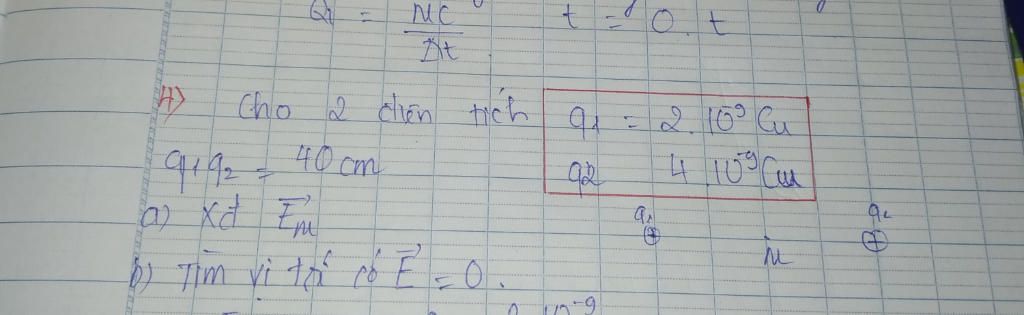 Q1 = MC / Δt t = 0. t
4) Cho 2 điện tích q1 = 2. 10⁻⁹ Cu
q1q2 = 40 cm q2 4 10⁻⁹ Cu
a) Xđ E⃗M
q1 ⊕ M q2 ⊕
b) Tìm vị trí có E⃗ = 0.
10⁻⁹